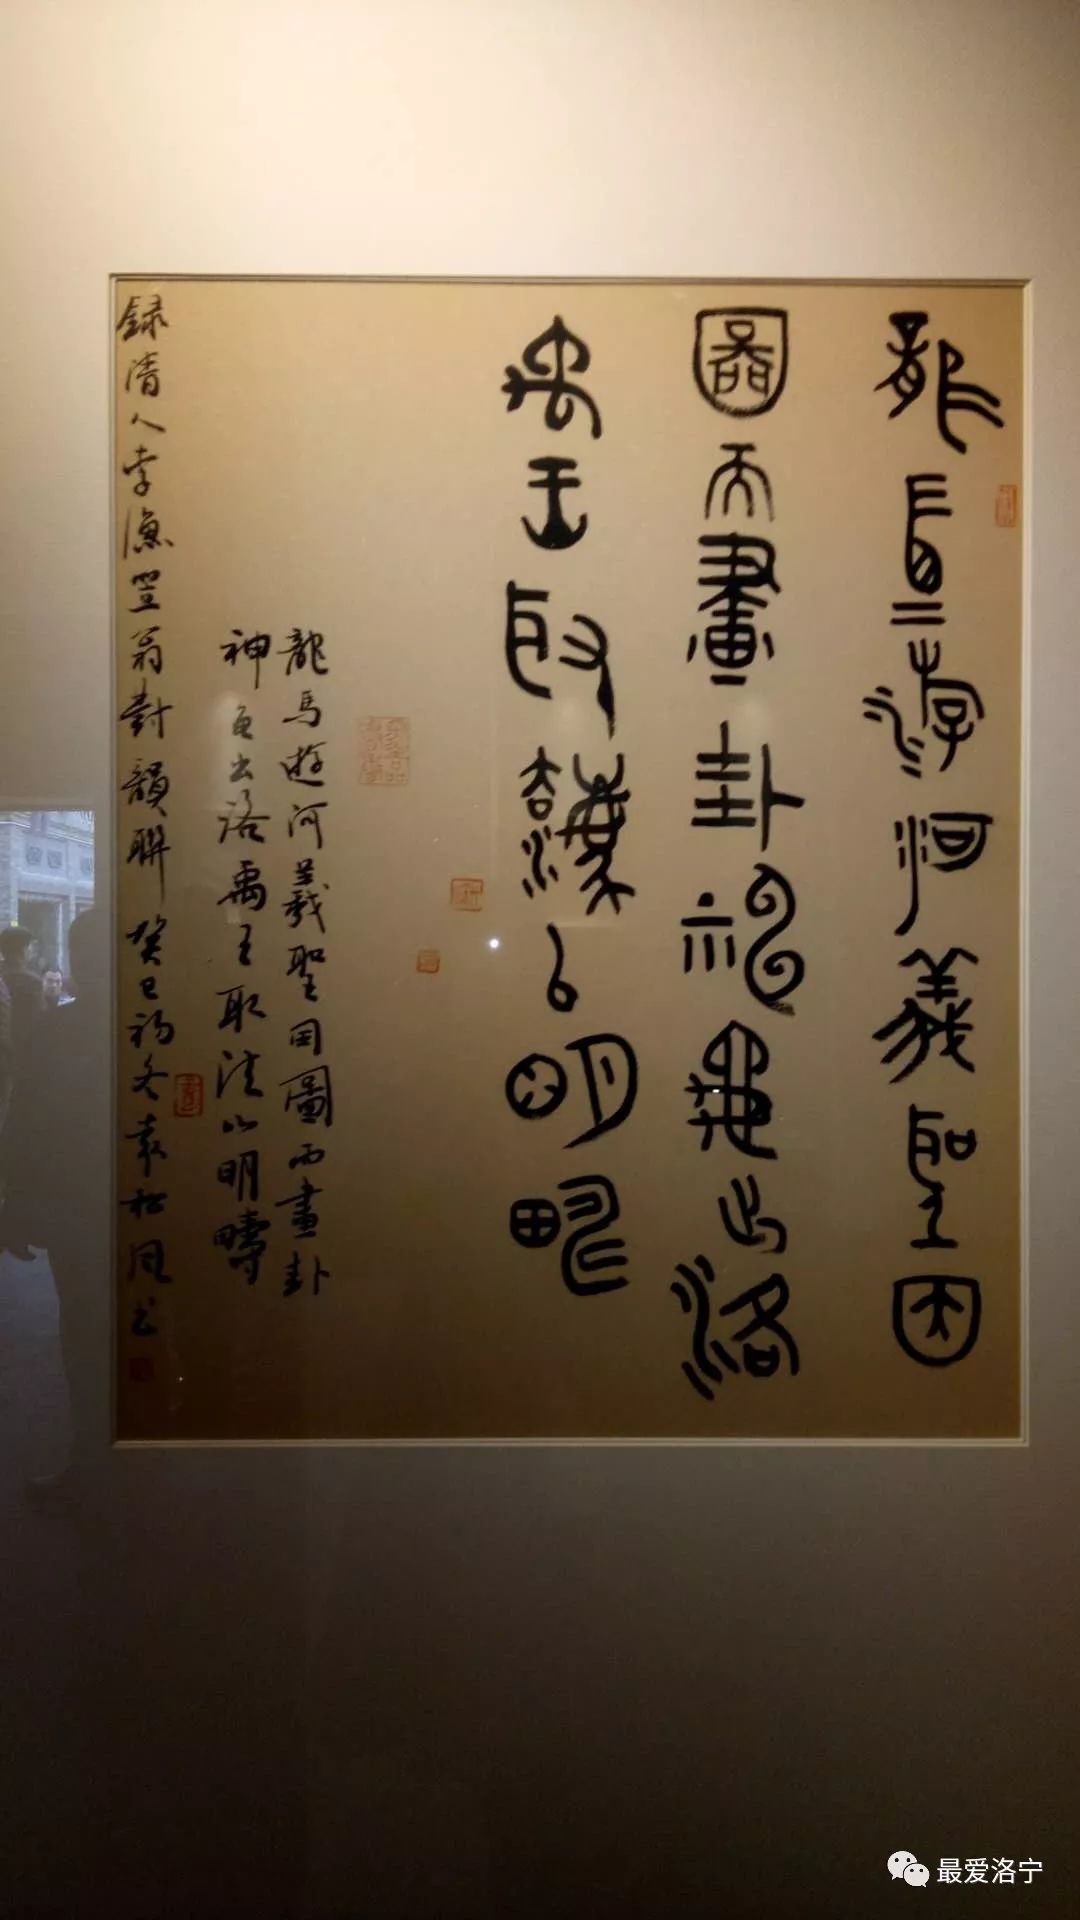 龍馬游河羲聖因
圖而畫卦神龜出洛
禹王取法以明疇
龍馬遊河羲聖因圖而畫卦
神龜出洛禹王取法以明疇
録清人李漁笠翁對韻聯癸巳初冬袁松風书
最爱洛宁